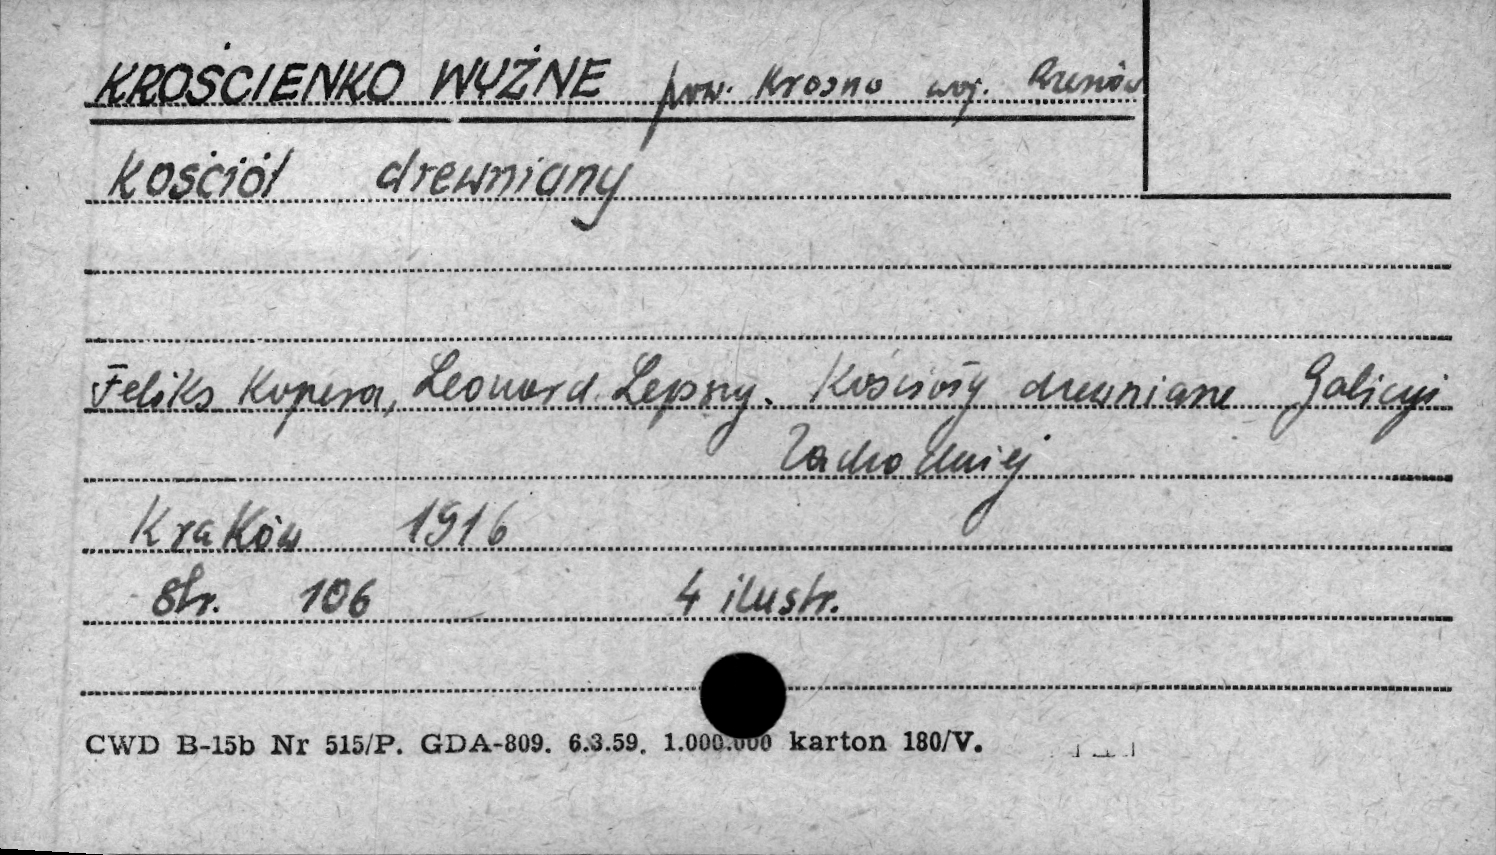 KROŚCIENKO WYŻNE pow. Krosno woj. Rzeszów
Kościół drewniany
Feliks Kopera, Leonard Lepszy. Kościoły drewniane Galicyi
Zachodniej
Kraków 1916
Str. 106 4 ilustr.
CWD B-15b Nr 515/P. GDA-809. 6.3.59. 1.000.000 karton 180/V.